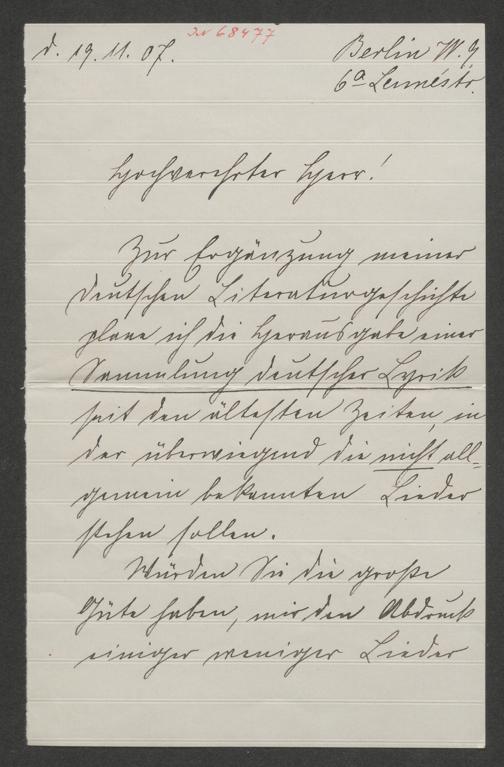 IN 68477
d. 19. 11. 07.
Berlin W. 9
6a Lennéstr.
Hochverehrter Herr!
Zur Ergänzung meiner
deutschen Literaturgeschichte
plane ich die Herausgabe einer
Sammlung deutscher Lyrik
seit den ältesten Zeiten, in
der überwiegend die nicht all-
gemein bekannten Lieder
stehen sollen.
Würden Sie die große
Güte haben, mir den Abdruck
einiger weniger Lieder